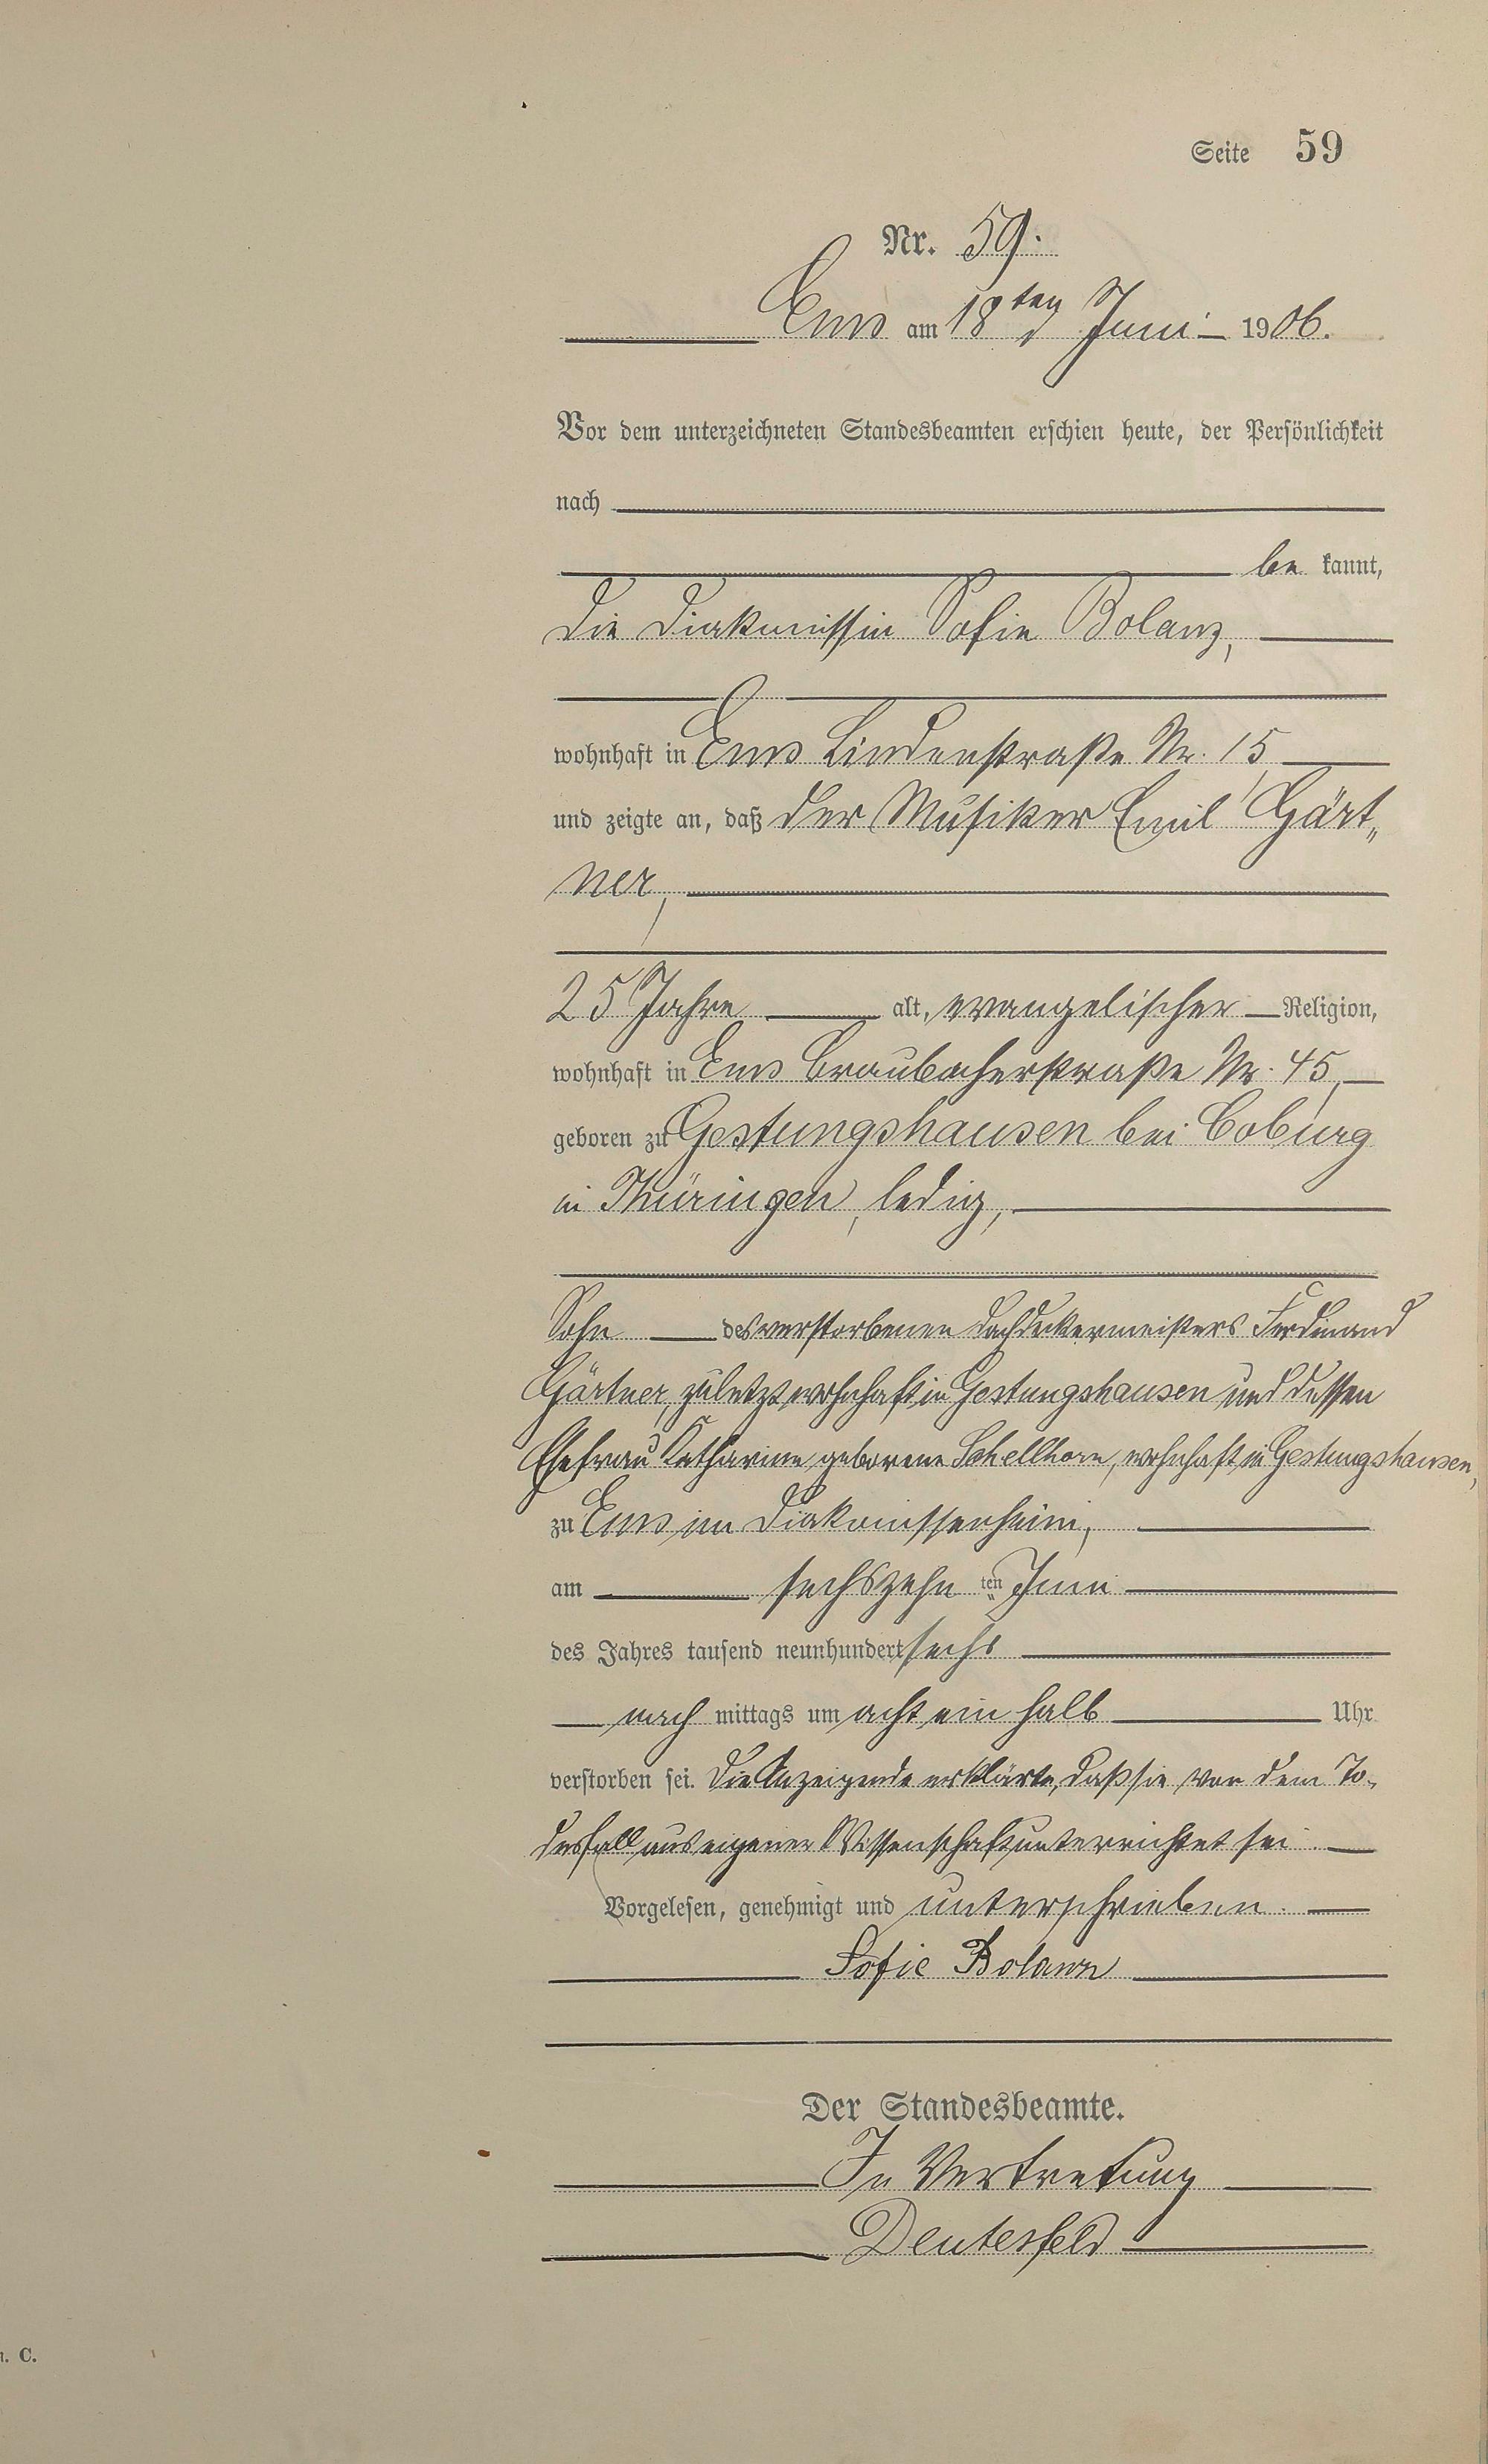 Seite 59
Nr. 59.
Ems am 18ten Juni 1906.
Vor dem unterzeichneten Standesbeamten erschien heute, der Persönlichkeit
nach
be kannt,
die Diakonissin Sofie Bolanz,
wohnhaft in Ems Lindenstraße Nr. 15
und zeigte an, daß der Musiker Emil Gärt„
ner,
25 Jahre alt, evangelischer Religion,
wohnhaft in Ems Braubacherstraße Nr. 45,
geboren zu Gestungshausen bei Coburg
in Thüringen, ledig,
Sohn des verstorbenen Dachdeckermeisters Ferdinand
Gärtner, zuletzt wohnhaft in Gestungshausen und dessen
Ehefrau Katharine geborene Schellhorn, wohnhaft in Gestungshausen,
zu Ems im Diakonissenheim,
am sechszehn ten Juni
des Jahres tausend neunhundert sechs
nach mittags um acht ein halb Uhr
verstorben sei. Die Anzeigende erklärte, daß sie von dem To-
desfall aus eigener Wissenschaft unterrichtet sei.
Vorgelesen, genehmigt und unterschrieben.
Sofie Bolanz
Der Standesbeamte.
In Vertretung
Deutesfeld
. C.